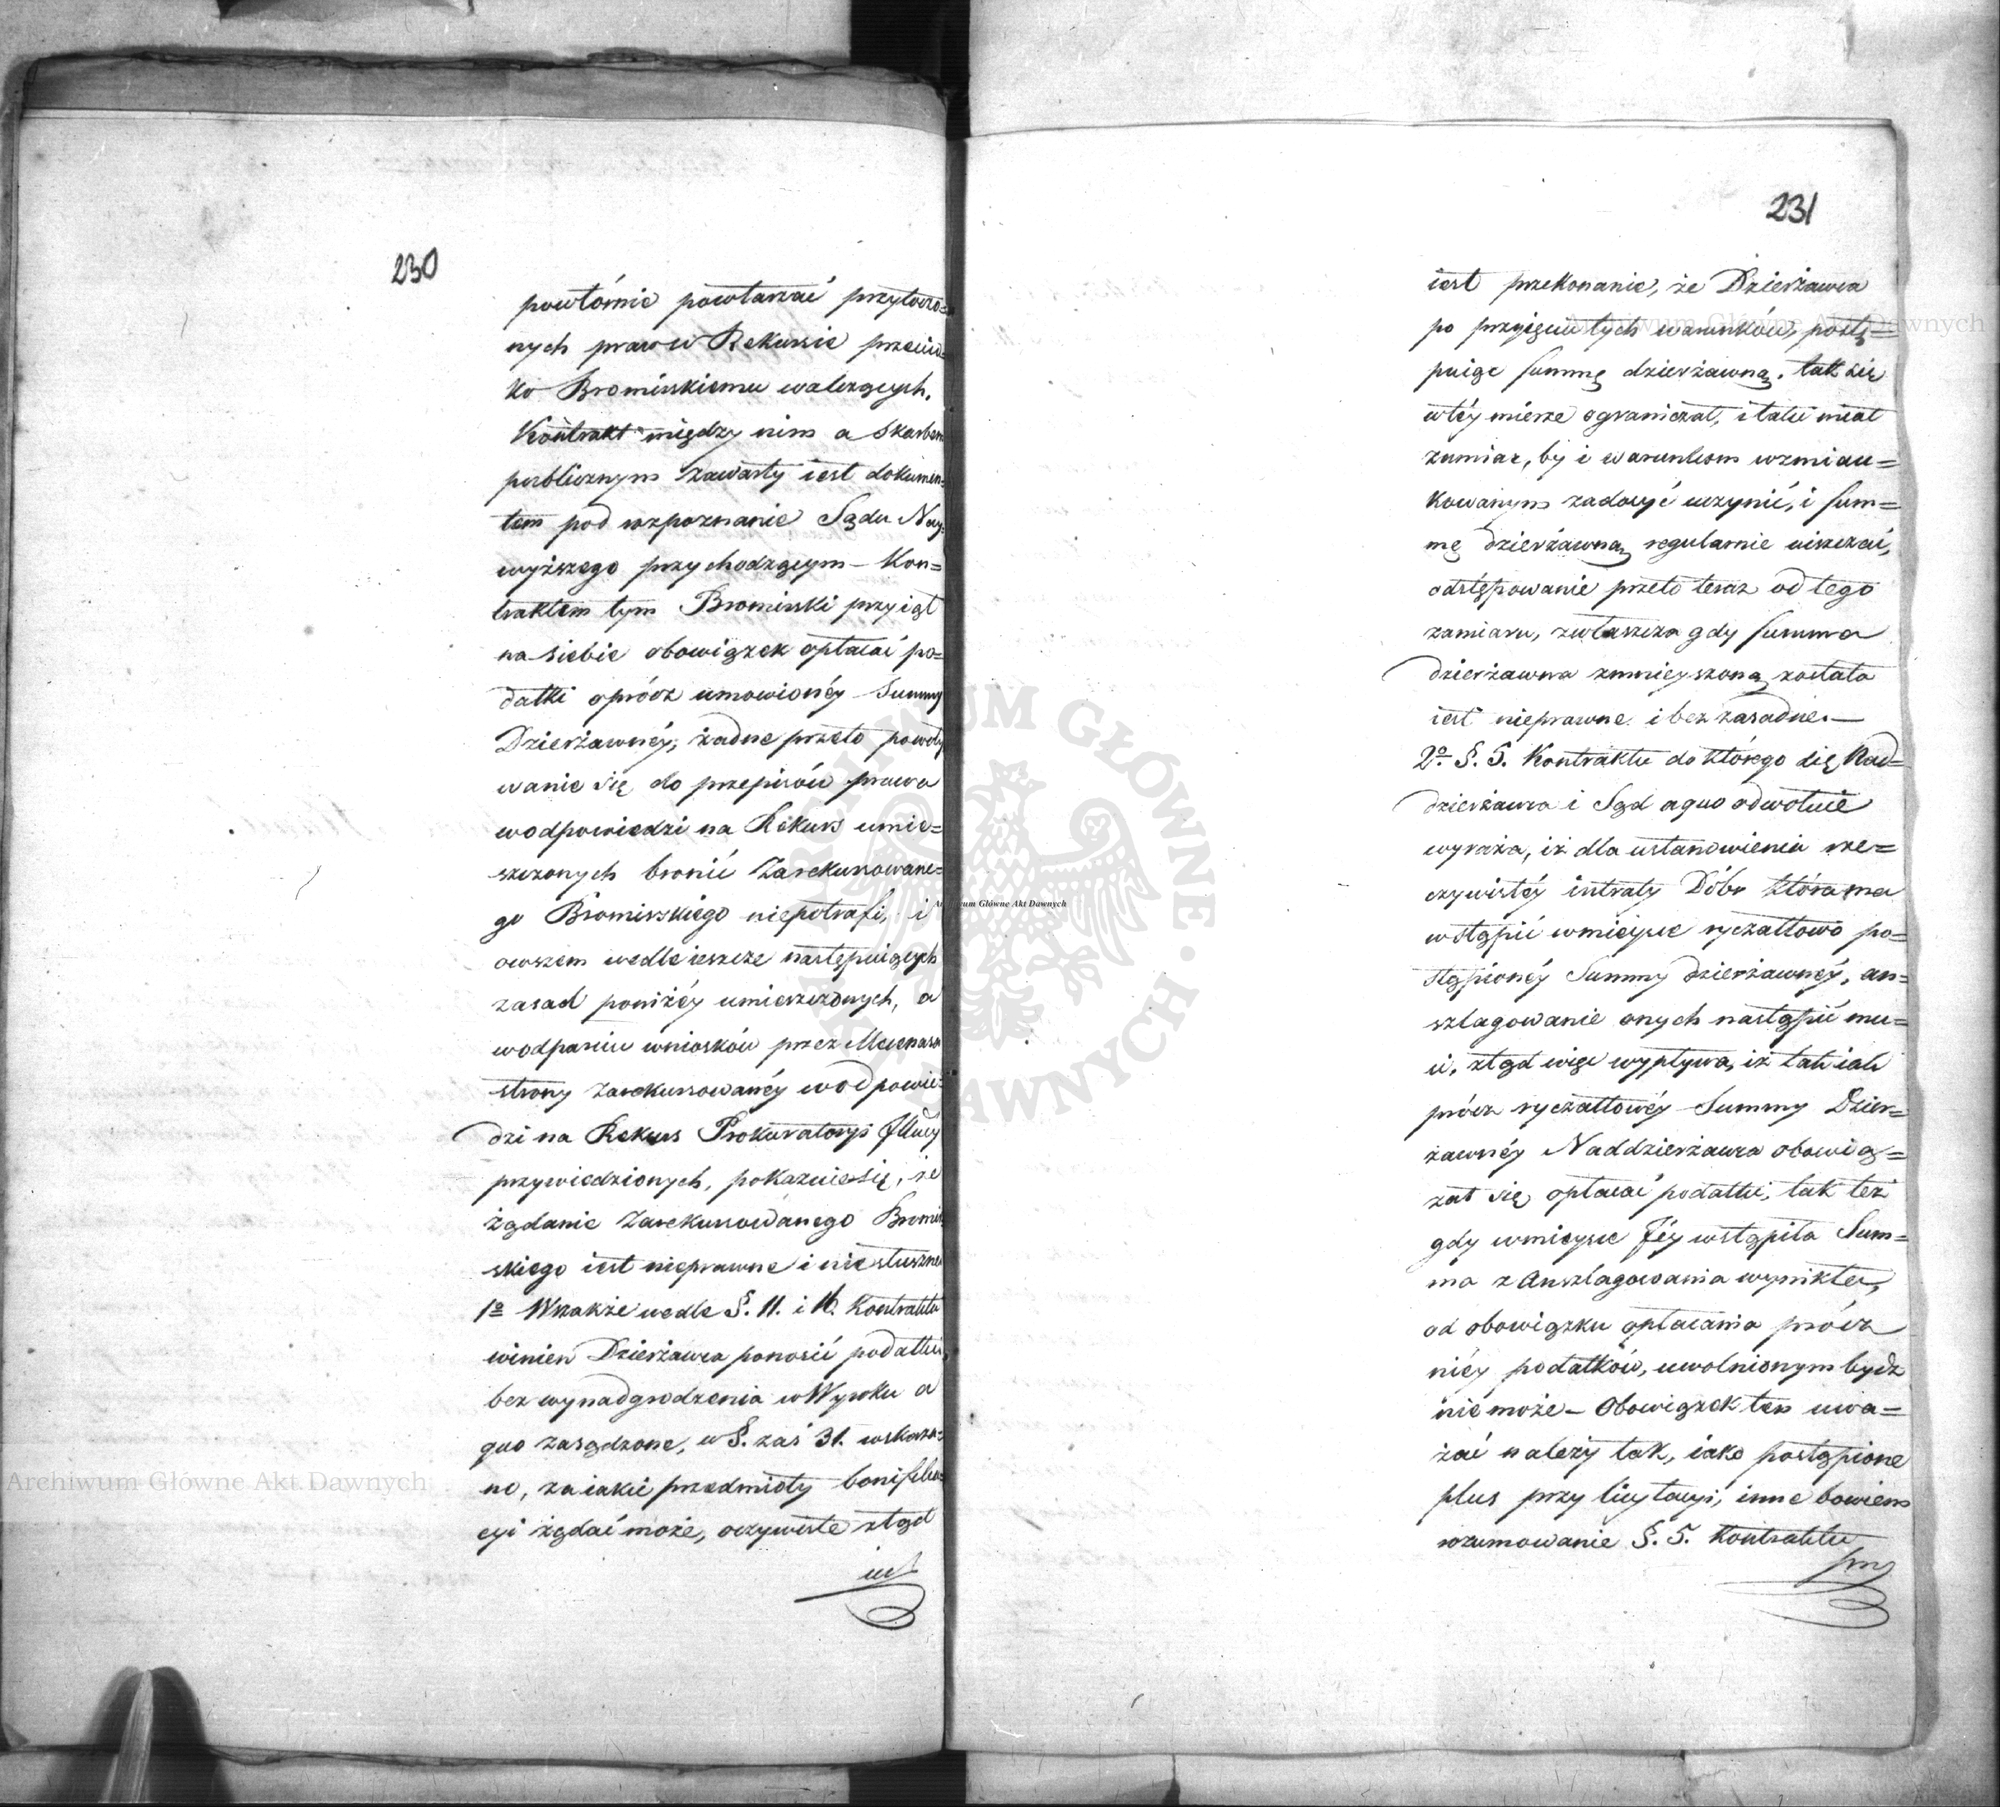 230
powtórnie powtarzać przytoczo=
nych praw w Rekursie przeciw=
ko Bromirskiemu walczących.
Kontrakt między nim a Skarbem
publicznym zawarty iest dokumen=
tem pod rozpoznanie Sądu Nay=
wyższego przychodzącym – Kon=
traktem tym Bromirski przyiął
na siebie obowiązek opłacać po=
datki oprócz umowionéy Summy
Dzierżawnéy, żadne przeto powoły
wanie się do przepisów prawa
w odpowiedzi na Rekurs umie=
szczonych bronić Zarekurowane=
go Bromirskiego niepotrafi, i
owszem wedle ieszcze następuiących
zasad poniżéy umieszczonych, a
w odparciu wniosków przez Mecenasa
strony zarekurowanéy w odpowie=
dzi na Rekurs Prokuratoryi
przywiedzionych, pokazuie się, że
żądanie Zarekurowanego Bromir
skiego iest nieprawne i niesłuszne
1º Wszakże wedle §. 11. i 16. Kontraktu
winien Dzierżawca ponosić podatki,
bez wynadgrodzenia w Wyroku a
quo zasądzone, w §. zaś 31. wskaza=
no, za iakie przedmioty bonifika=
cyi żądać może, oczywiste ztąd
iest
231
iest przekonanie, że Dzierżawca
po przyięciu tych warunków, postę=
puiąc summę dzierżawną, tak się
w téy mierze ograniczał, i taki miał
zamiar, by i warunkom wzmian=
kowanym zadosyć uczynić, i sum=
mę dzierżawną regularnie uiszczać,
odstępowanie przeto teraz od tego
zamiaru, zwłaszcza gdy summa
dzierżawna zmnieyszoną została
iest nieprawne i bezzasadne. —
2º §. 5. Kontraktu do którego się Nad=
dzierżawca i Sąd a quo odwołuie
wyraża, iż dla ustanowienia rze=
czywistéy intraty Dóbr która ma
wstąpić w mieysce ryczałtowo po=
stąpionéy Summy dzierżawnéy, an=
szlagowanie onych nastąpić mu=
si, ztąd więc wypływa, iż tak iak
prócz ryczałtowéy Summy Dzier=
żawnéy Naddzierżawca obowią=
zał się opłacać podatki, tak też
gdy w mieysce Jéy wstąpiła Sum=
ma z Anszlagowania wynikła,
od obowiązku opłacania prócz
niéy podatków, uwolnionym bydz
nie może – Obowiązek ten uwa=
żać należy tak, iako postąpione
plus przy licytacyi, inne bowiem
rozumowanie §. 5. Kontraktu
Archiwum Główne Akt Dawnych
Archiwum Główne Akt Dawnych
Archiwum Główne Akt Dawnych
ARCHIWUM GŁÓWNE AKT DAWNYCH